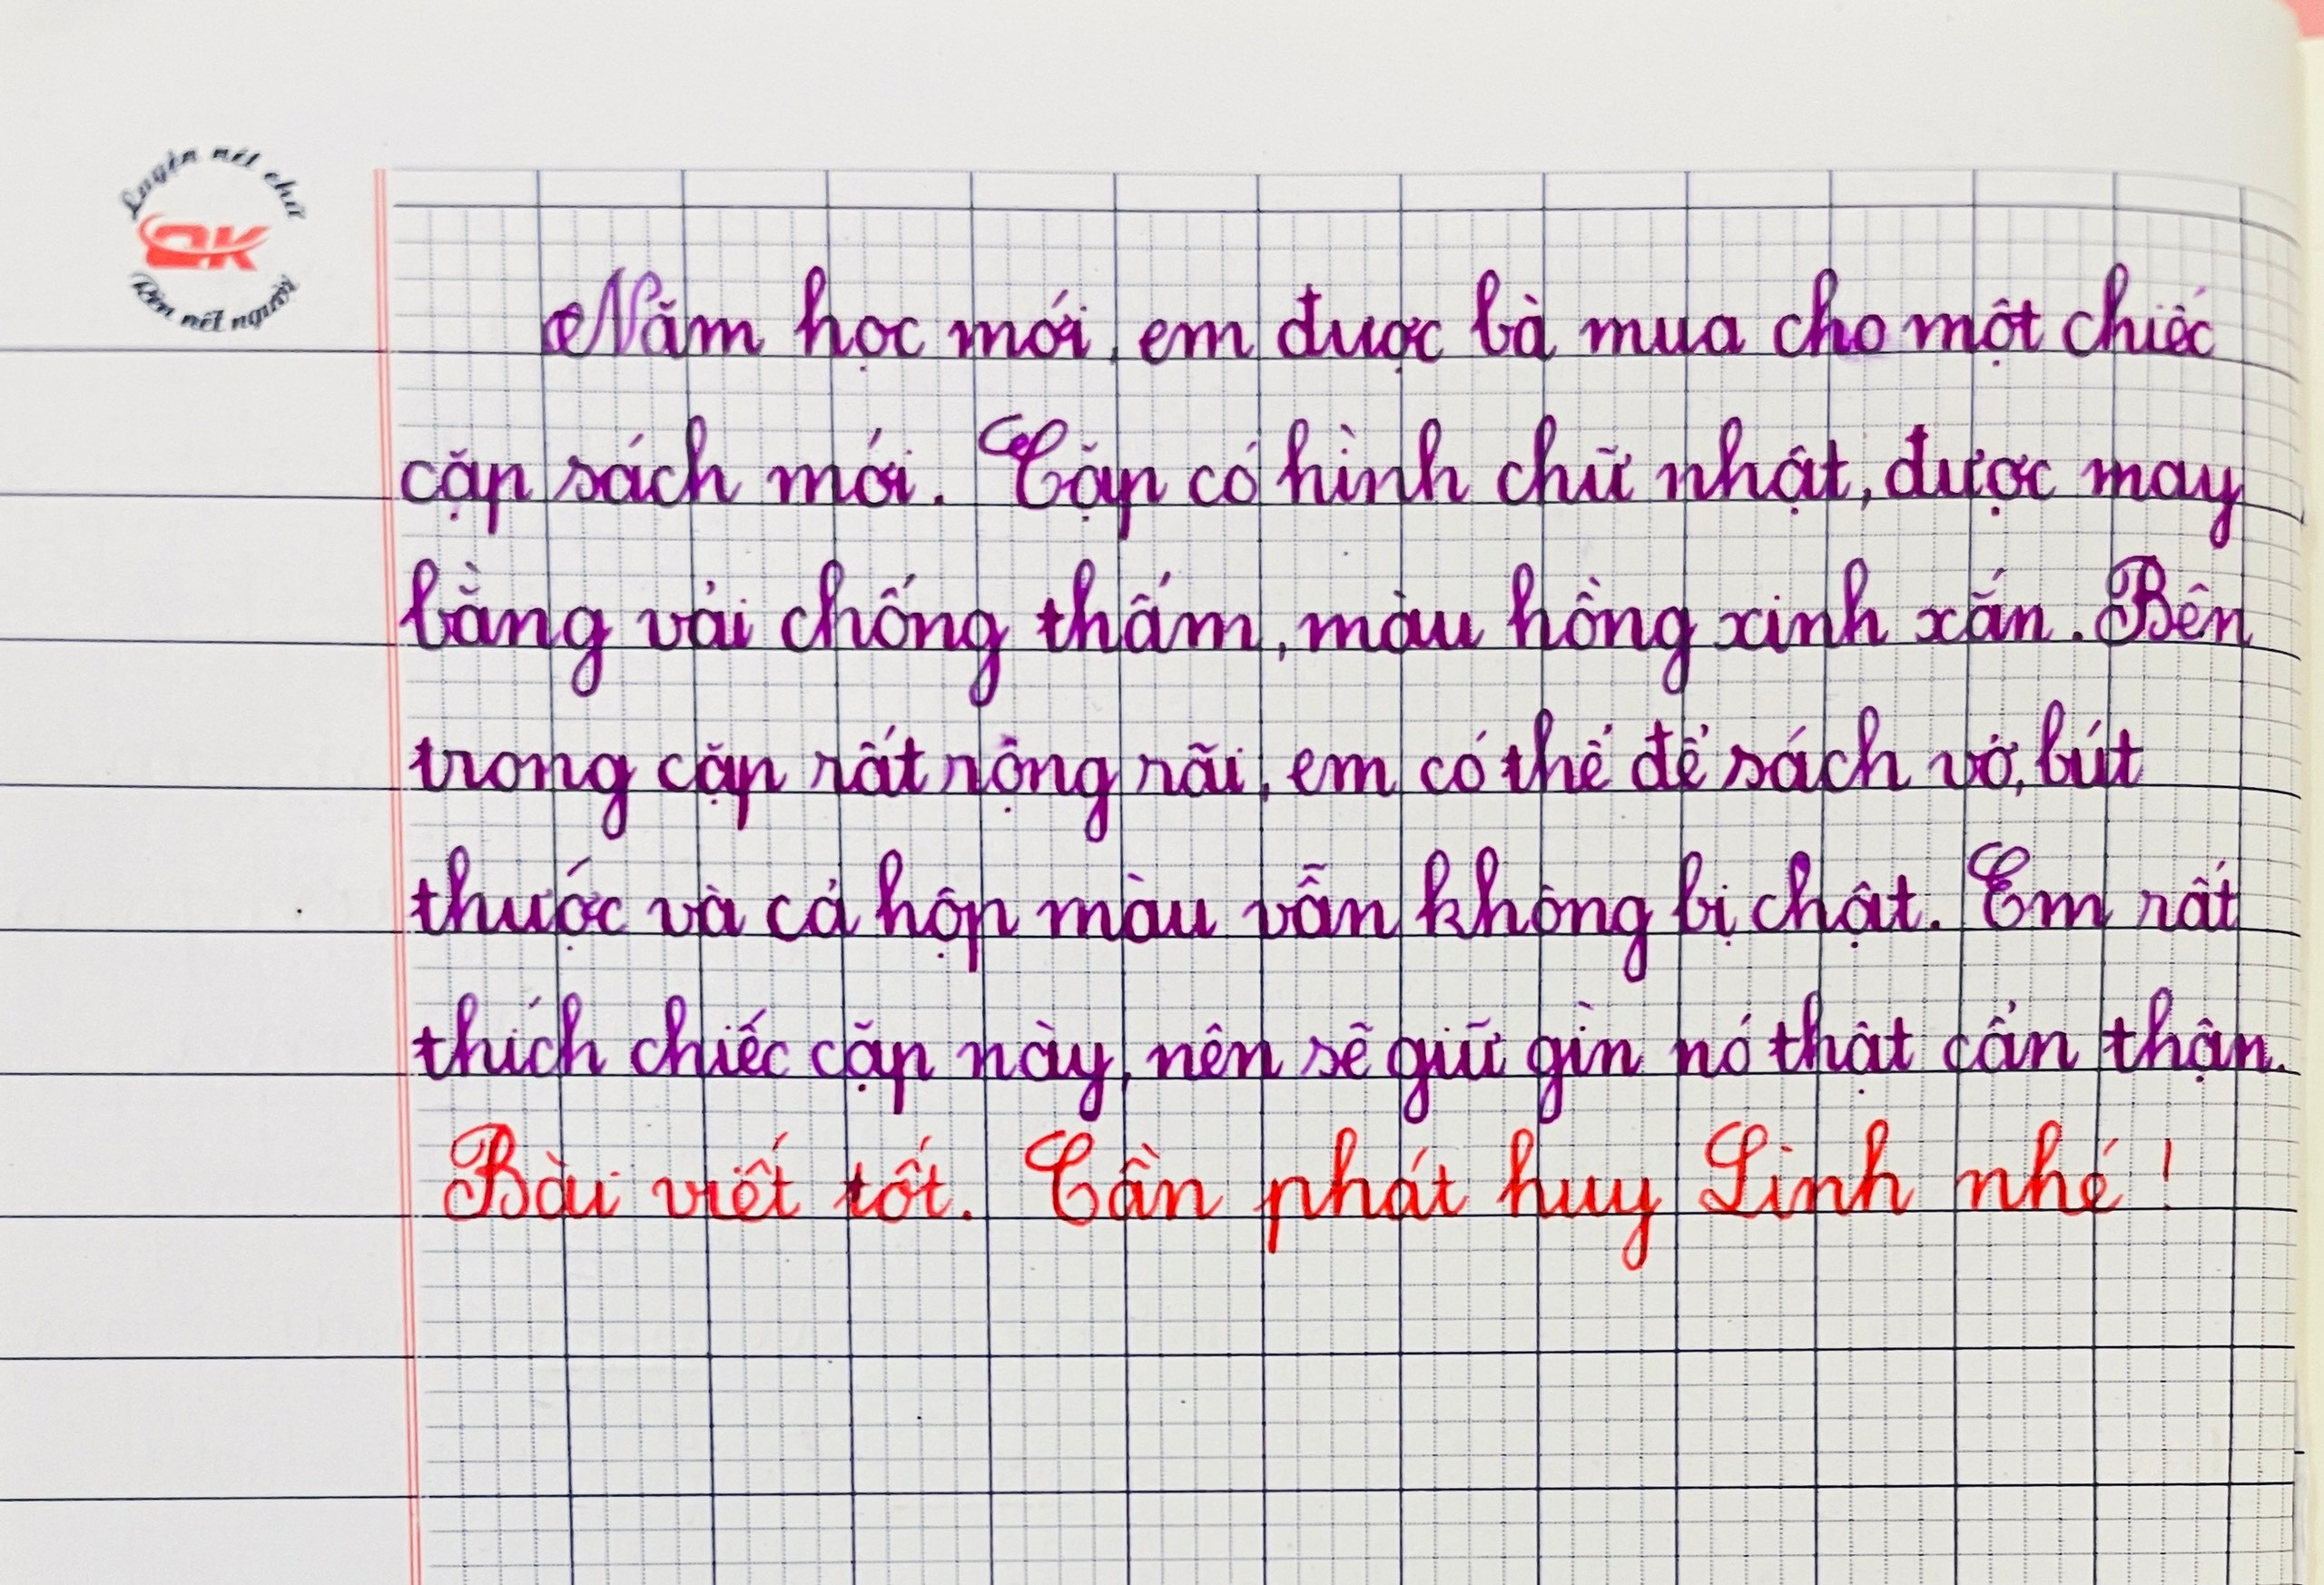 Luyện nét chữ
QK
Rèn nết người
Năm học mới, em được bà mua cho một chiếc
cặp sách mới. Cặp có hình chữ nhật, được may
bằng vải chống thấm, màu hồng xinh xắn. Bên
trong cặp rất rộng rãi, em có thể để sách vở, bút
thước và cả hộp màu vẫn không bị chật. Em rất
thích chiếc cặp này, nên sẽ giữ gìn nó thật cẩn thận.
Bài viết tốt. Cần phát huy Linh nhé!